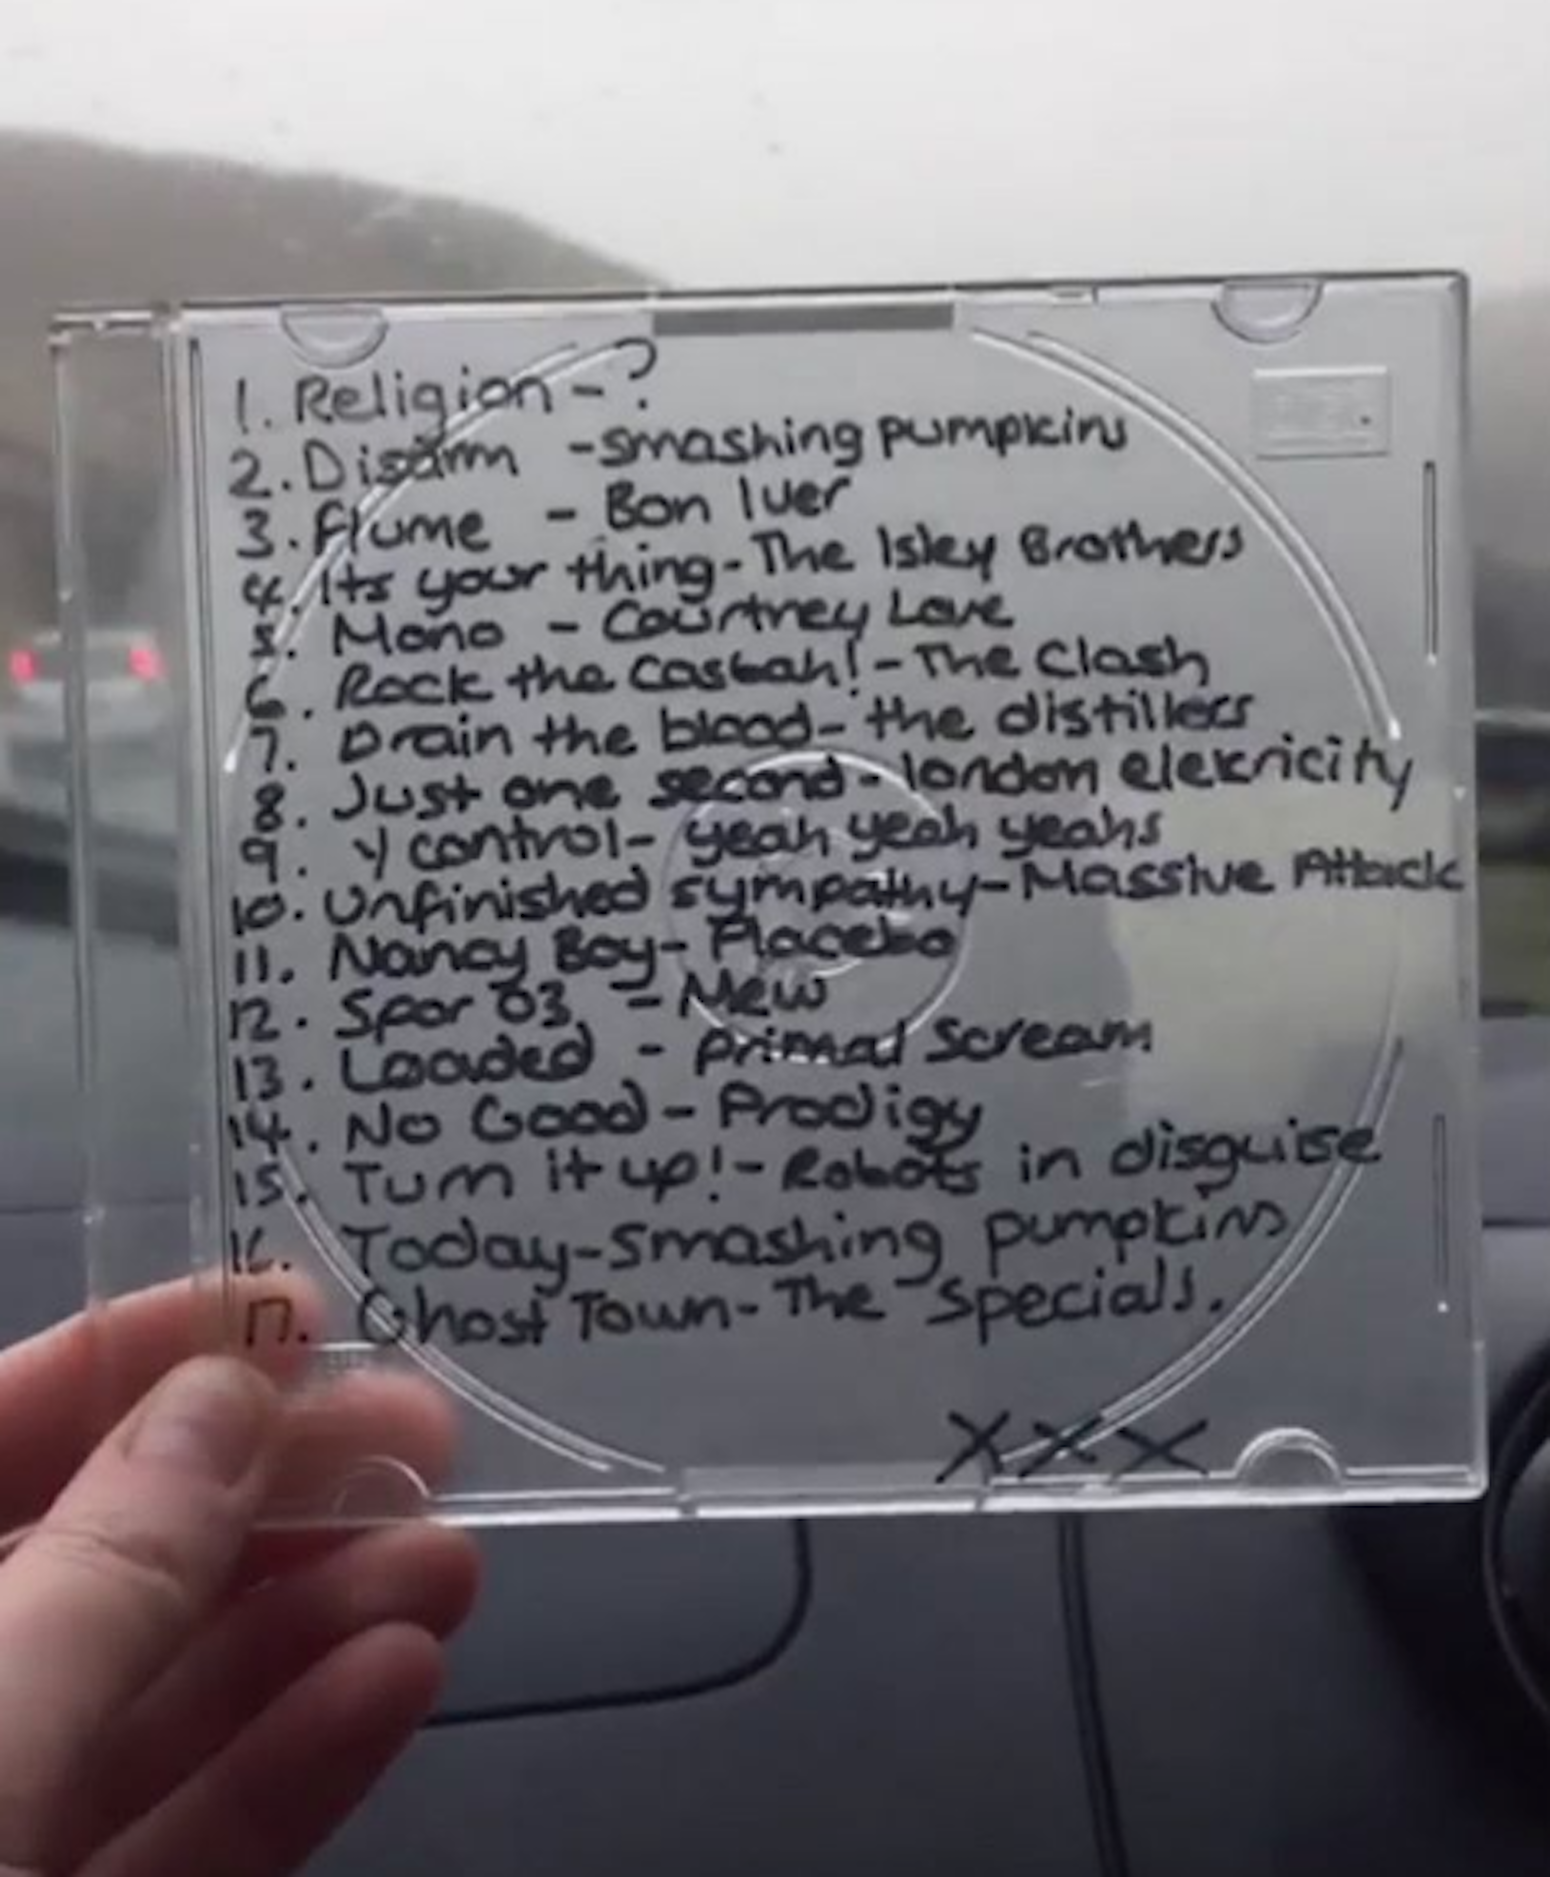 1. Religion - ?
2. Disarm - Smashing pumpkins
3. Flume - Bon Iver
4. Its your thing - The Isley Brothers
5. Mono - Courtney Love
6. Rock the Casbah! - The Clash
7. Drain the blood - the distillers
8. Just one second - london elekricicity
9. Y control - yeah yeah yeahs
10. Unfinished sympathy - Massive Attack
11. Nancy Boy - Placebo
12. Spor 03 - Mew
13. Loaded - primal Scream
14. No Good - Prodigy
15. Turn it up! - Robots in disguise
16. Today - Smashing pumpkins
17. Ghost Town - The Specials.
XXX